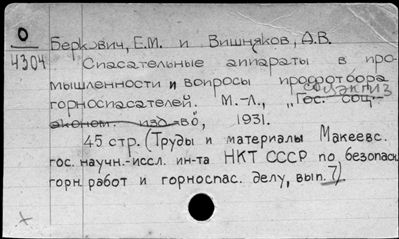 О
4304
Беркович, Е.М. и Вишняков, А.В.
Спасательные аппараты в про-
мышленности и вопросы профотбора
соцэкгиз
горноспасателей. М.-Л., "Гос. соц.-
эконом. изд-во", 1931.
45 стр. (Труды и материалы Макеевс.
гос. научн.-иссл. ин-та НКТ СССР по безопасн.
горн. работ и горноспас. делу, вып. 7)